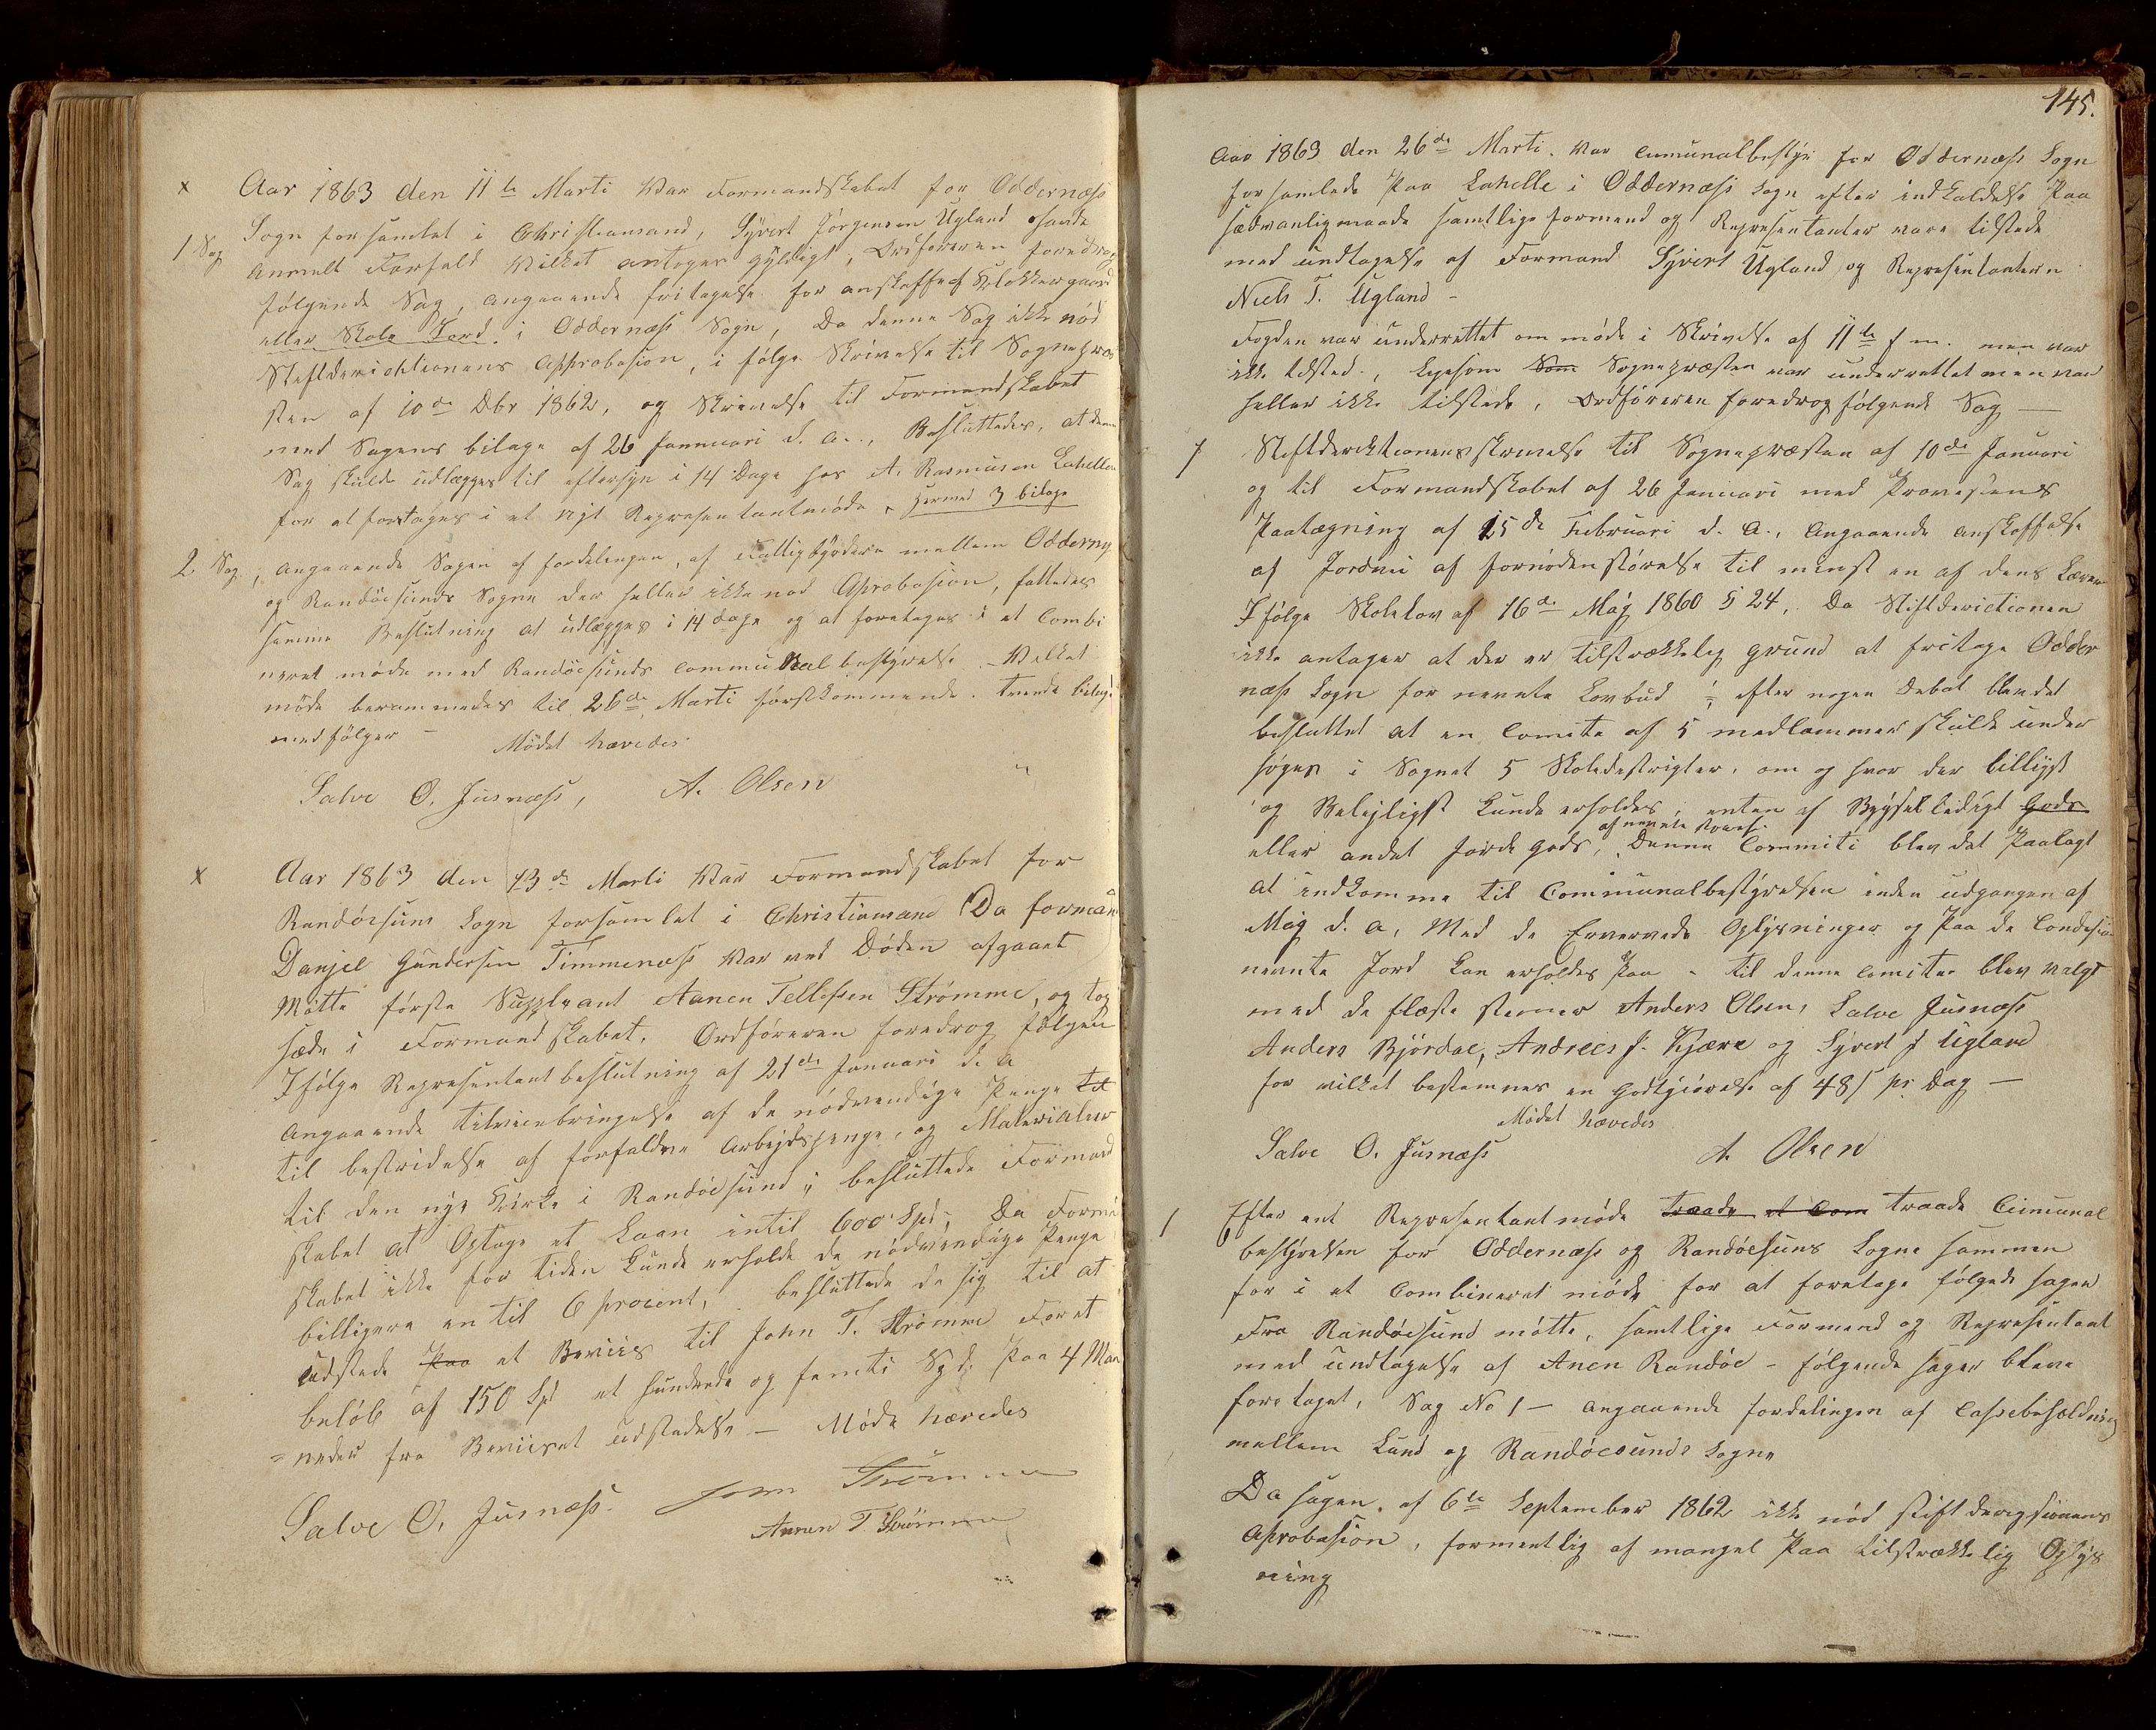 Aar 1863 den 11te Marti Var Formandskabet for Oddernæss
1 Sag Sogn forsamlet i Christiansand, Syvert Jørgensen Ugland havde
anmelt Forfald vilket antoges gyldigt, Ordføreren foredrog
følgende Sag, angaaende fritagelse for anskaffe af Klokkergaard
eller Skole Jord. i Oddernæss Sogn, Da denne Sag ikke nød
Stiftderecktionens Approbasion, i følge Skrivelse til Sognepræ
sten af 10de Dbr 1862, og Skrivelse til Formandskabet
med Sagens bilage af 26 Jannuari d. a., Besluttedes, at denne
Sag skulde udlægges til eftersyn i 14 Dage hos A. Rasmusen Lahelle
for at foretages i et nyt Representantmøde, hermed 3 bilage
2 Sag, angaaende Sagen af fordelingen, af Fattigbyrdere mellem Odderny
og Randøesunds Sogne der heller ikke nød Aprobasion, fattedes
samme Beslutning at udlægges i 14 dage og at foretages i et Combi
neret møde med Randøesunds Communalbestyrelse. Velket
møde berammedes til 26de Marti førstkommende. trende bilage
medfølger -
Mødet hævedes
Salve O. Jusnæss, A. Olsen
x Aar 1863 den 13de Marti Var Formandskabet for
Randøesuns Sogn forsamlet i Christiansand Da forman
Danjel Gundersen Timmenæss Var ved Døden afgaaet
Møtte første Suppleant Aanen Tellefsen Strømme, og tog
sæde i Formandskabet, Ordføreren foredrog følgen
Ifølge Representantbeslutning af 21de Januari d. a
angaaende tilveiebringelse af de nødvendige Penge til
til bestridelse af forfaldne Arbejdspenge, og Materialier
til den nye Kirke i Randøesund; besluttede Formand
skabet at Optage et Laan intil 600 Spd; Da Forma
skabet ikke for tiden kunde erholde de nødvendige Penge
billigere en til 6 procent, besluttede de sig til at
udstede Paa et Beviis til John T. Strømme For et
beløb af 150 Spd et hundrede og femti Spd: Paa 4 Maa
=neder fra Beviiset udstedelse - Møde hævedes
Salve O. Jusnæss. John Strømme
Aanen T Strømme
145.
Aar 1863 den 26de Marti. Var Cumunalbestyr for Oddernæss Sogn
forsamlede Paa Lahelle i Oddernæss Sogn efter indkaldelse Paa
sædvanligmaade samtlige formend og Representanter vare tilstede
med undtagelse af Formand Syvert Ugland og Representantern
Niels T. Ugland -
Fogden var underrettet om møde i Skrivelse af 11te f m. men var
ikke tilsted., ligesom Som Sognepræsten var underrettet men var
heller ikke tilstede, Ordføreren foredrog følgende Sag —
1 Stiftderecktionens skrivelse til Sognepræsten af 10de Januari
og til Formandskabet af 26 Januari med Provestens
Paategning af 15de Februari d. a., Angaaende anskaffelse
af Jordvei af fornøden størrelse til minst en af dens Lærer
Ifølge Skolelov af 16de Maj 1860 § 24, Da Stiftderictionen
ikke antager at der er tilstrækkeleg grund at fritage Odder
næss Sogn for nevnte Lovbud ; efter nogen Debat blev det
besluttet at en Comite af 5 medlemmer skulde under
søger i Sognet 5 Skoledestrigter, om og hvor der billigst
og Belejligst kunde erholdes, enten af Bygselledigt Gods
af nevnte størels.
eller andet Jorde gods, Denne Commiti blev det Paalagt
at indkomme til Communalbestyrelsen inden udgangen af
Maj d. a, Med de Erverevede Oplysninger og Paa de Condesio
nevnte Jord kan erholdes Paa - til denne Comitee blev Valgt
med de fleste stemer Anders Olsen, Salve Jusnæss
Anders Bjørdal, Andrees J. Kjære og Syvert J Ugland
for vilket bestemmes en godtgiørelse af 48 s pr Dag —
Mødet hævedes
Salve O. Jusnæss A. Olsen
1 Efter ent Representantmøde traade et Com traade Cumunal
bestyrelsen for Oddernæss og Randøesuns Sogne sammen
for i et Combineret møde for at foretage følgede sager
Fra Randøesund møtte, samtlige Formend og Representant
med undtagelse af Anen Randøe - følgende sager bleve
foretaget, Sag No 1 — angaaende fordelingen af Cassebeholdning
mellem Lund og Randøesunds Sogne
Da sagen af 6te September 1862 ikke nød stiftderegsionens
Aprobasion, formentlig af mangel Paa tilstrækkelig Oplys
ning